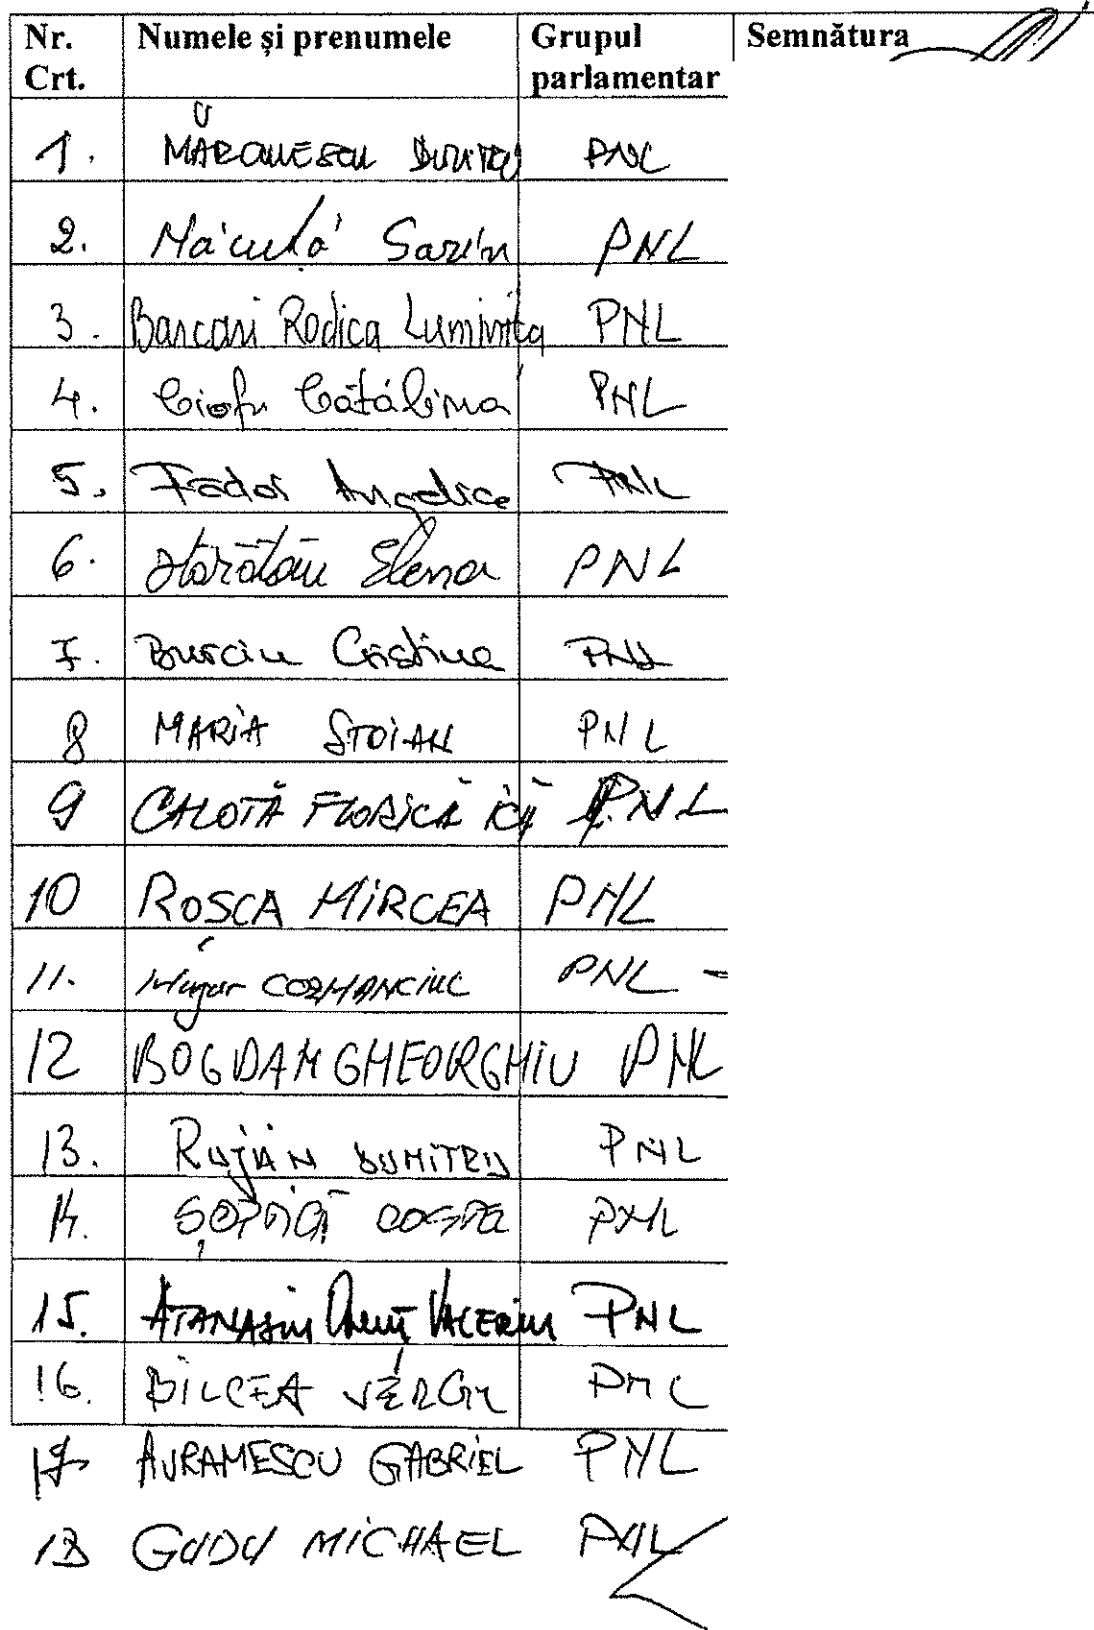 Nr. Crt. Numele și prenumele Grupul parlamentar Semnătura
1. MĂRCULESCU DUMITRU PNL
2. Măcută Sorin PNL
3. Barcari Rodica Luminița PNL
4. Ciofu Cătălina PNL
5. Fădor Angelica PNL
6. Hărătău Elena PNL
7. Burciu Cristina PNL
8 MARIA STOIAN PNL
9 CALOTĂ FLORICĂ ICĂ PNL
10 ROSCA MIRCEA PNL
11. Mugur COZMANCIUC PNL
12 BOGDAN GHEORGHIU PNL
13. RUJAN DUMITRU PNL
14. ȘOPTICĂ COSTEL PNL
15. ATANASIU IONUȚ VALERIU PNL
16. BILCEA VERGIL PNL
17 AVRAMESCU GABRIEL PNL
18 GUDU MICHAEL PNL